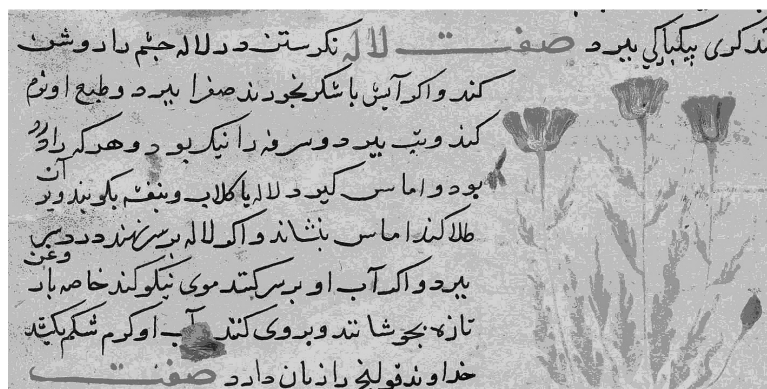 تدکری بیکبارکی ببرد صفت لاله نکرستن در لاله چشم را روشن
کند و اکر آبش با شکر بخورند صفرا ببرد و طبع او نرم
کند و تب ببرد و سرفه را نیک بود و هرکه را درد
بود و اماس کیرد لاله با کلاب و بنفشه بکوبند و بر آن
طلا کند اماس بنشاند و اکر لاله بر سر نهند درد سر
ببرد و اکر آب او بر سر کنند موی نیکو کند خاصه با روغن
تازه بجوشانند و بروی کنند آب او کرم شکم بکشد
خداوند قولنج را زیان دارد صفت